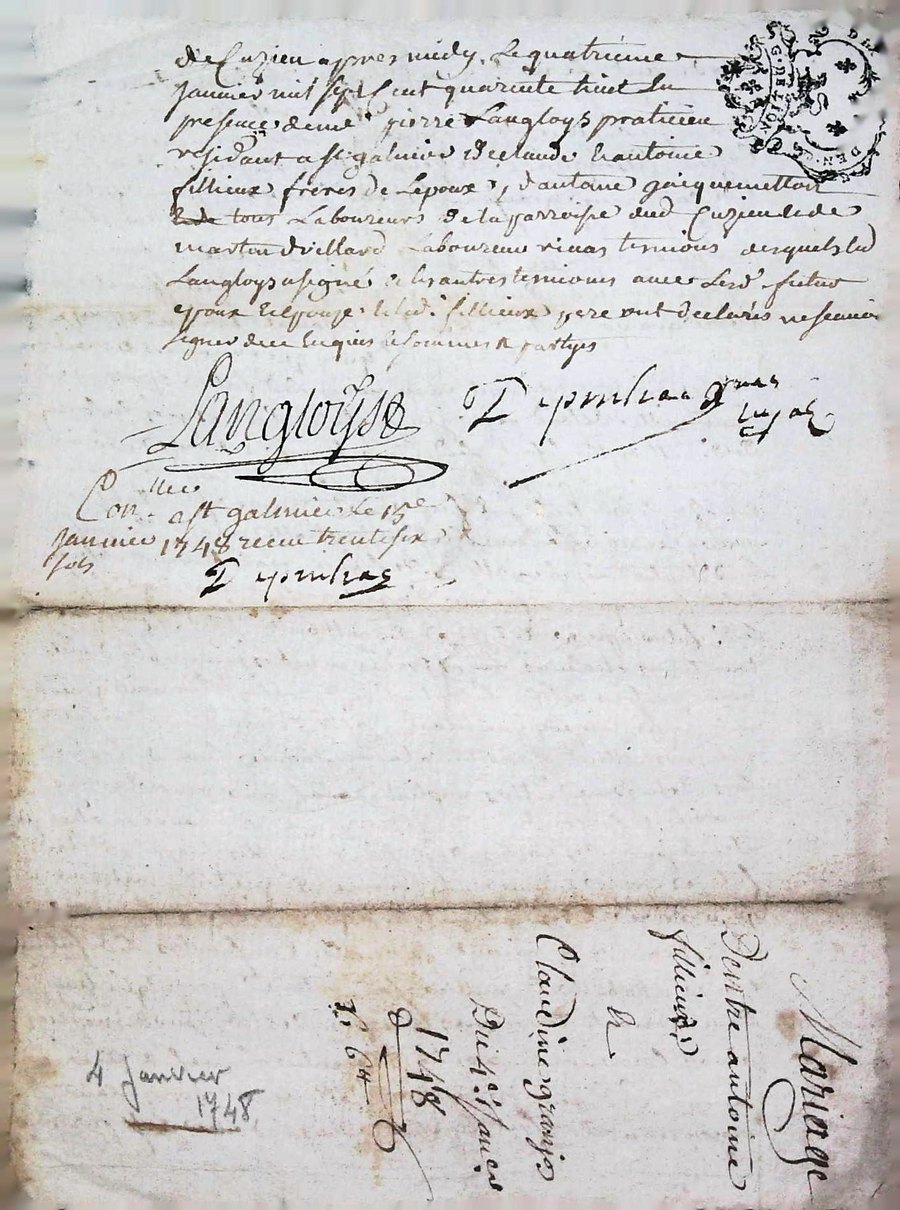 de Cuzieu apres midy. Le quatrième
Janvier mil sept Cent quarente huit En
presence de me pierre Langloys praticien
residant a st galmier & claude & antoine
fillieux freres de Lepoux, & antoine
tous Laboureurs de la parroisse dud Cuzieu & de
martin villard Laboureur temoins desquels led
Langloys a signé & les autres temoins avec Lesd. futur
epoux & Epouse & led. fillieux pere ont declarés ne scavoir
signer de ce Enquis & sommes & partyes
Langloys
Con.llee a st galmier le 15e
Janvier 1748 receu trente six
sols
Mariage
Dentre antoine
fillieux
&
Claudine
Du 4e. Janvier
1748
4 Janvier
1748